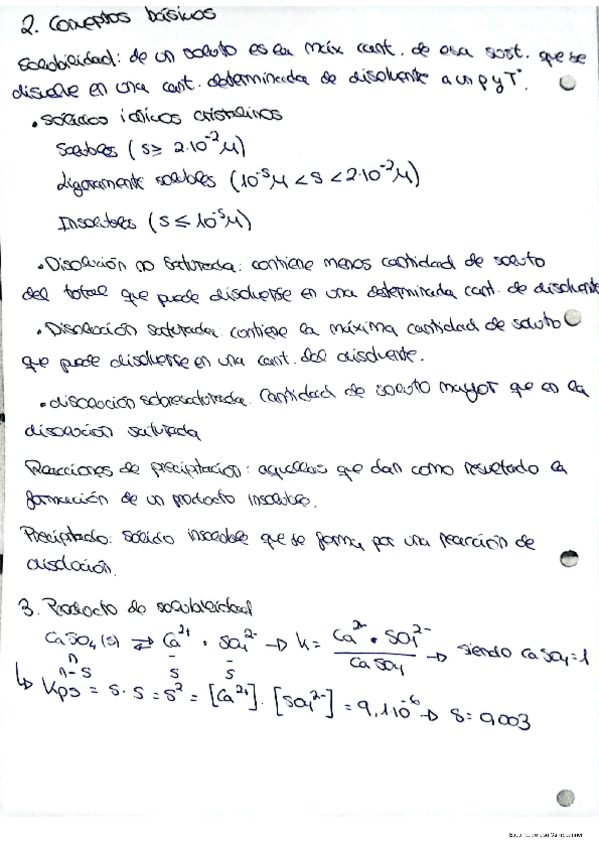 2. Conceptos básicos
Solubilidad: de un soluto es la máx cant. de esa sust. que se
disuelve en una cant. determinada de disolvente a un p y Tª.
• Sólidos iónicos cristalinos
Solubles (S ≥ 2·10⁻² M)
Ligeramente solubles (10⁻⁵ M < S < 2·10⁻² M)
Insolubles (S ≤ 10⁻⁵ M)
• Disolución no saturada: contiene menos cantidad de soluto
del total que puede disolverse en una determinada cant. de disolvente
• Disolución saturada: contiene la máxima cantidad de soluto
que puede disolverse en una cant. del disolvente.
• disolución sobresaturada. Cantidad de soluto mayor que en la
disolución saturada
Reacciones de precipitación: aquellas que dan como resultado la
formación de un producto insoluble.
Precipitado: sólido insoluble que se forma por una reacción de
disolución.
3. Producto de solubilidad
CaSO₄(s) ⇄ Ca²⁺ + SO₄²⁻ → K = Ca²⁺ · SO₄²⁻ / CaSO₄ → siendo CaSO₄ = 1
n - -
n-s s s
↳ Kps = s · s = s² = [Ca²⁺] · [SO₄²⁻] = 9,1·10⁻⁶ → s = 0,003